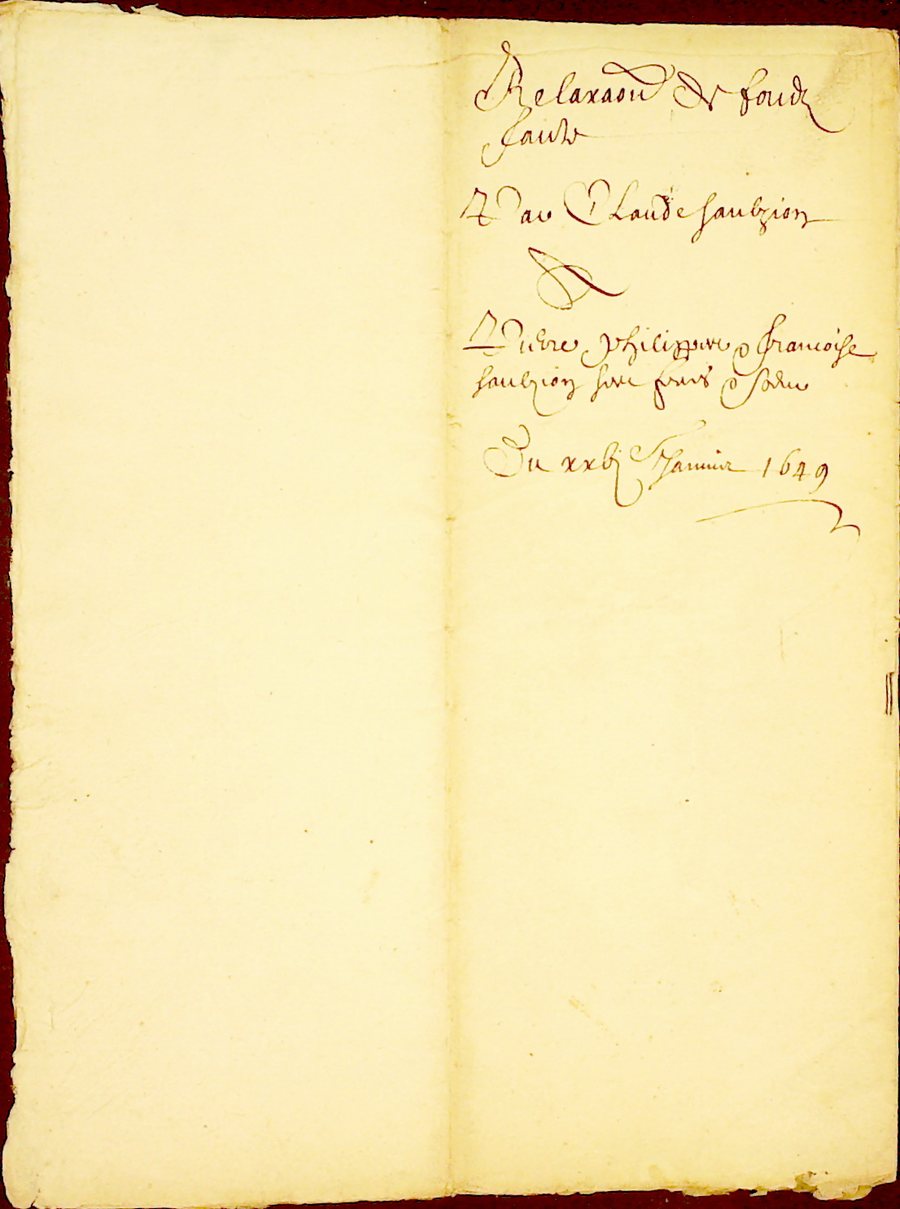 Relaxaon de fondz
faicte
Par Claude sanlzion
A
Pierre philippe & francoise
sanlzion ses freres & soeur
Du xxvj Janvier 1649